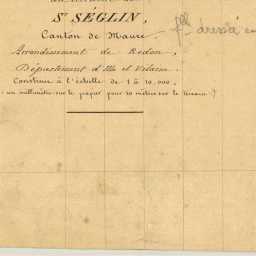 St SÉGLIN,
Canton de Maure,
Arrondissement de Redon,
Département d'Ille et Vilaine
Construit à l'échelle de 1 à 10,000,
un millimètre sur le papier pour 10 mètres sur le terrain.)
dressé en